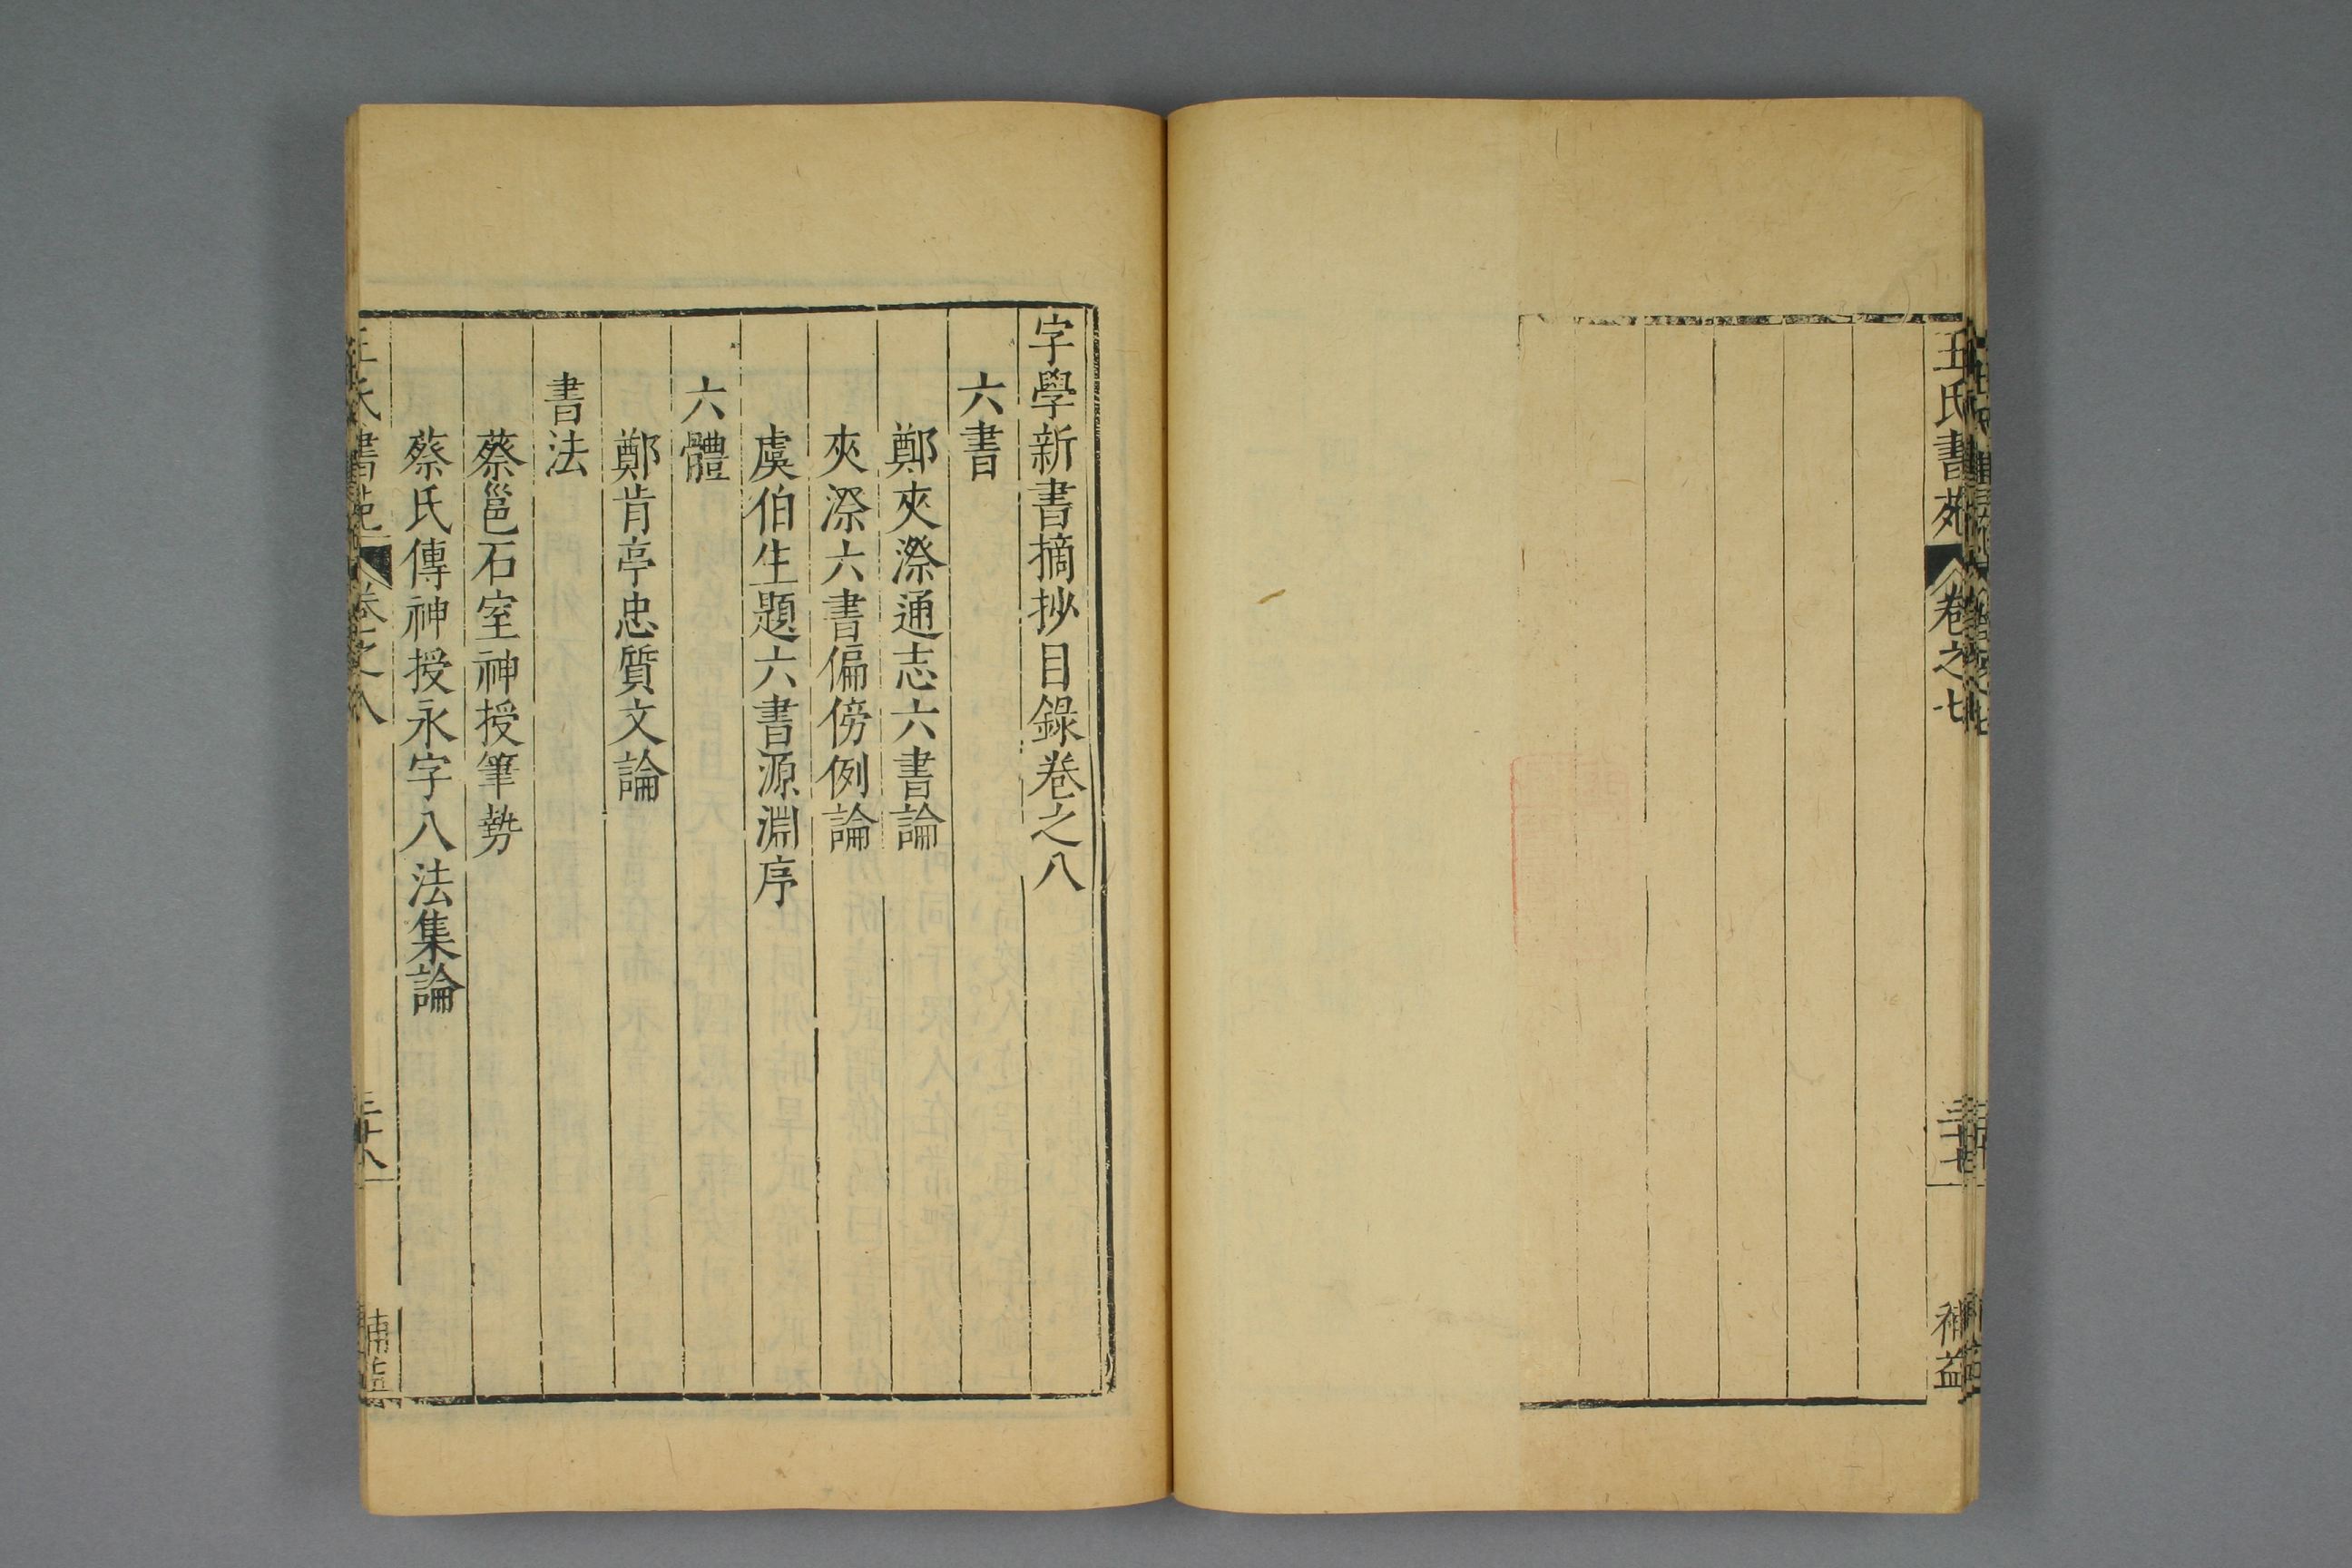 王氏書苑 卷之七 三十七 補益
字學新書摘抄目錄卷之八
六書
鄭夾漈通志六書論
夾漈六書偏傍例論
虞伯生題六書源淵序
六體
鄭肯亭忠質文論
書法
蔡邕石室神授筆勢
蔡氏傳神授永字八法集論
王氏書苑 卷之八 三十八 補益